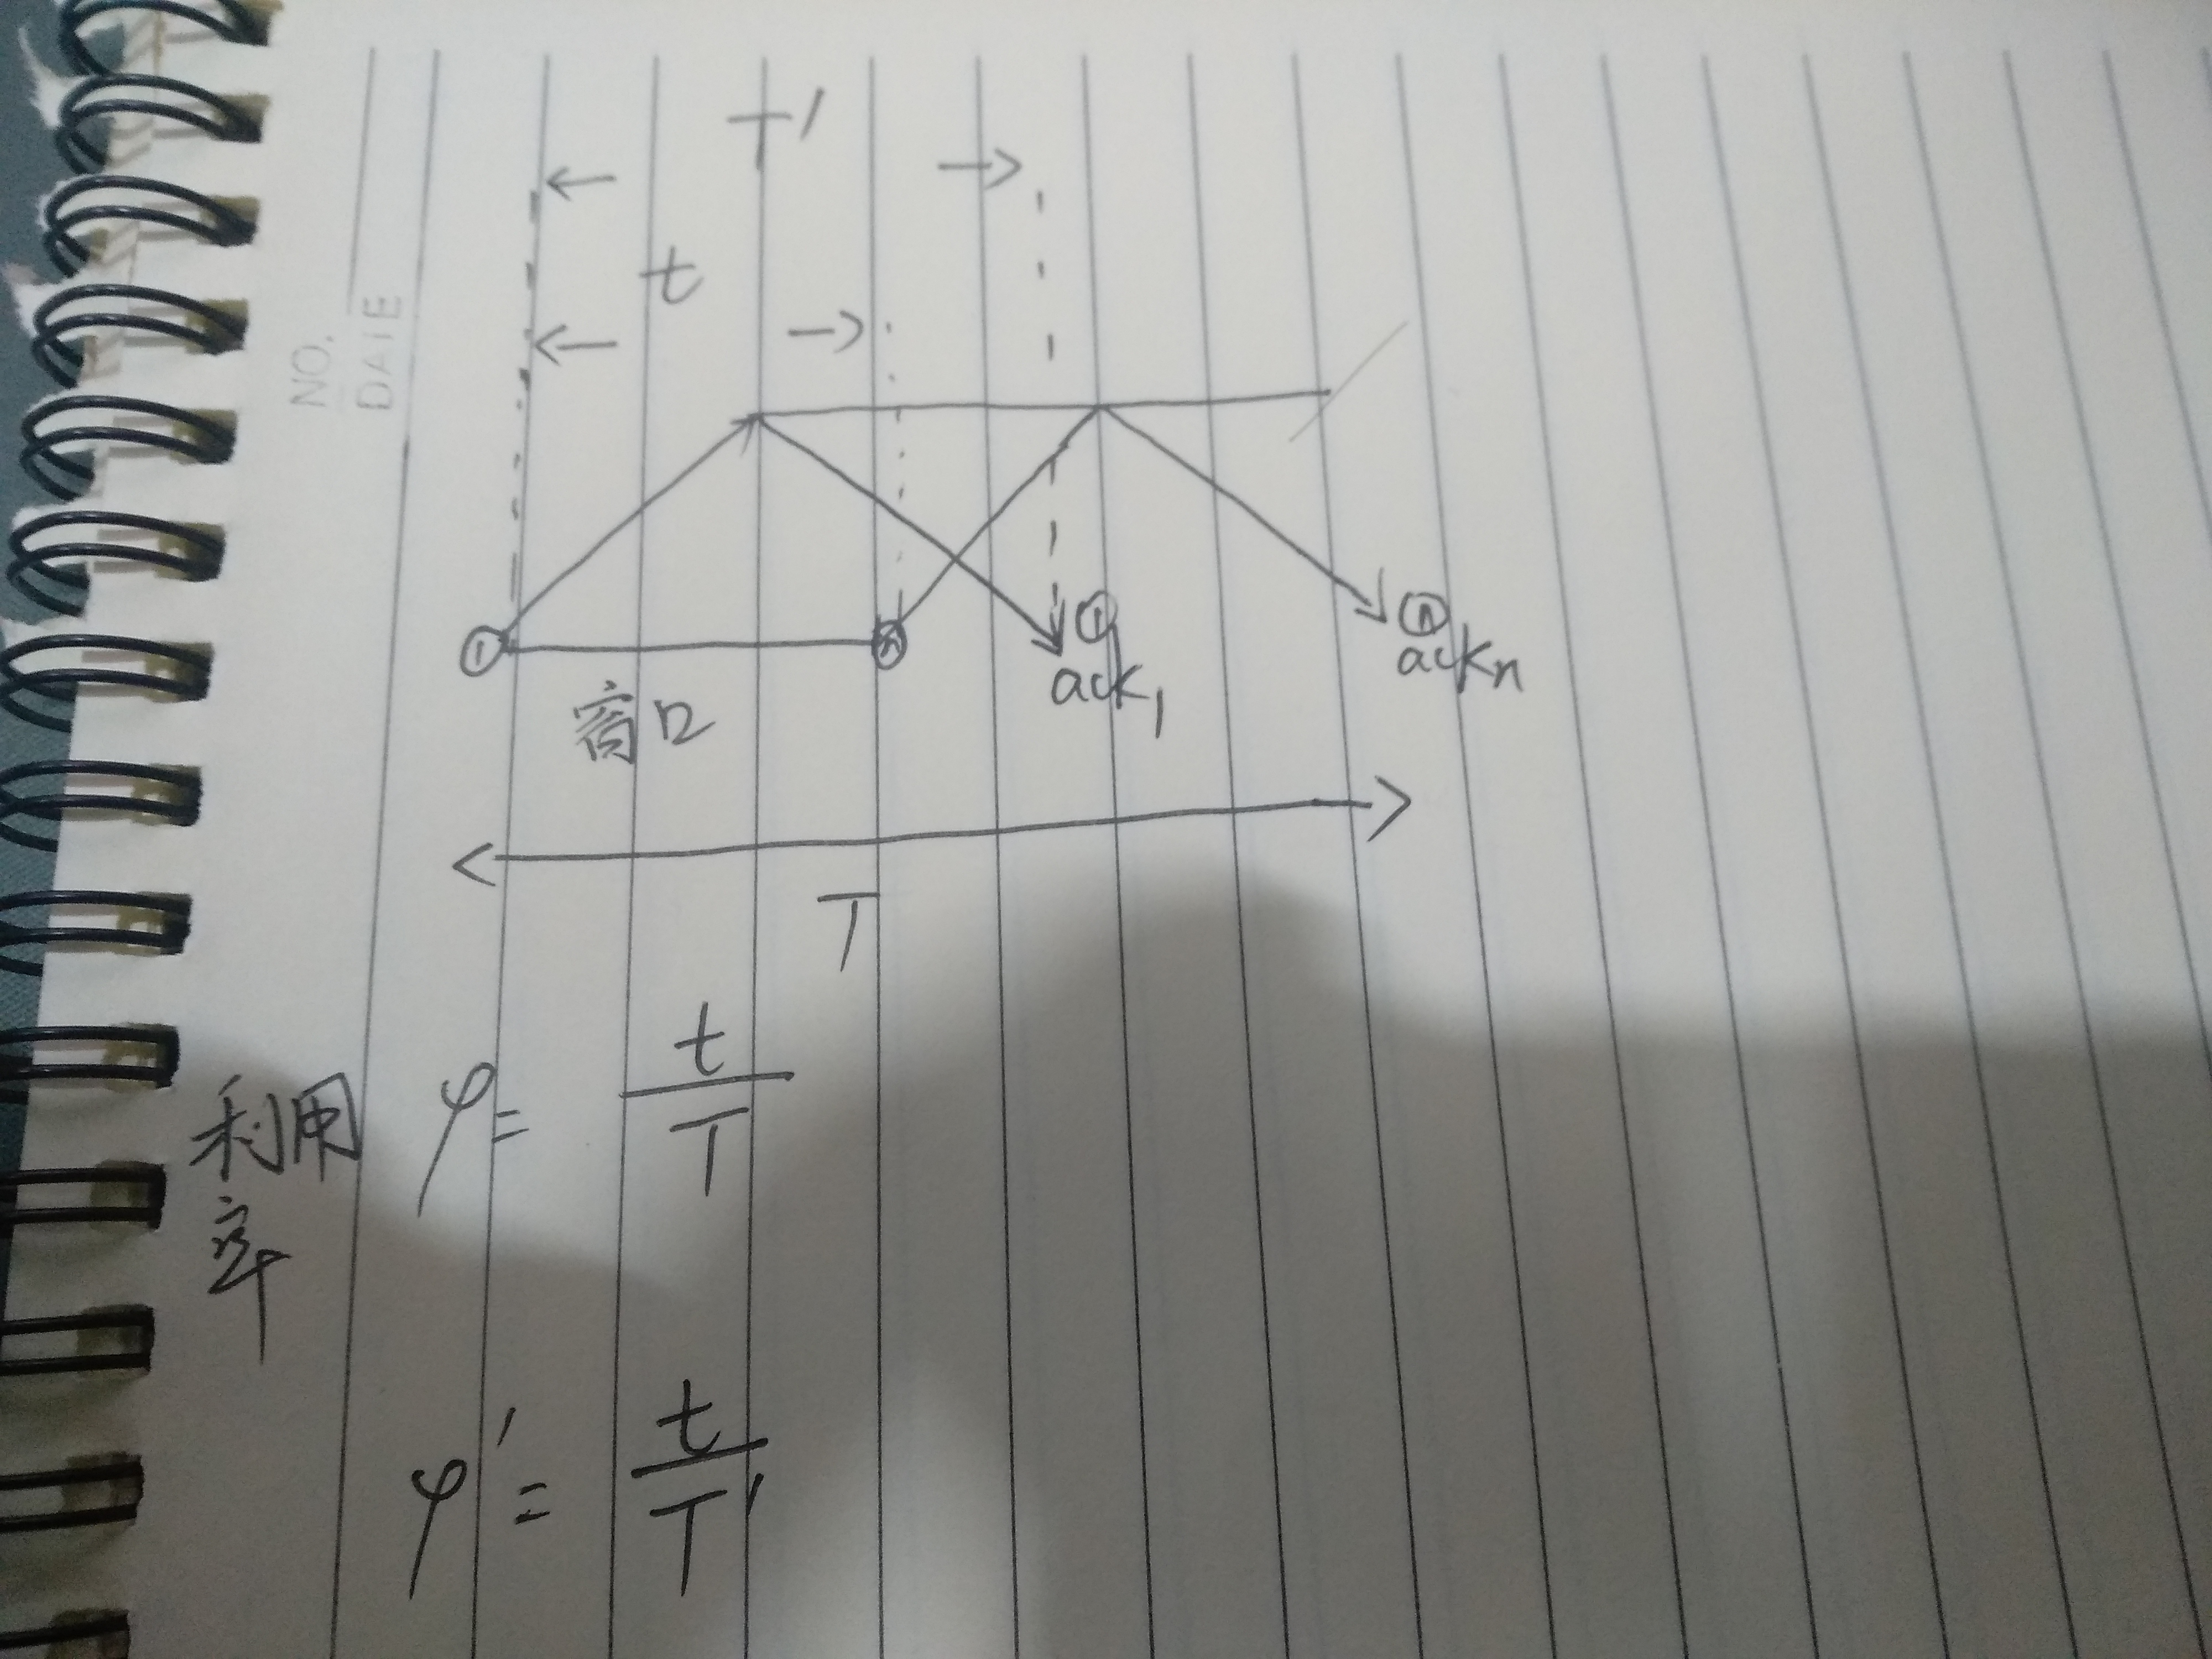 T'
t
NO.
DATE
① ⓝ ① ⓝ
ack₁ ackₙ
窗口
T
利用率 φ = t/T
φ' = t/T'